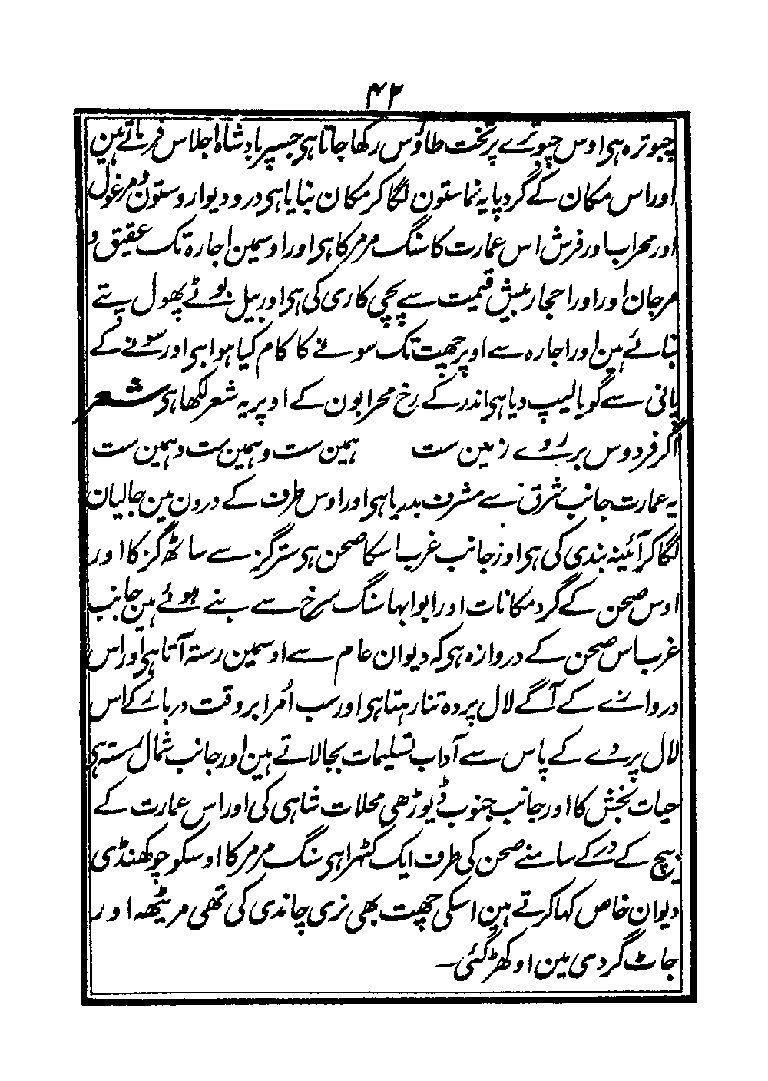 ۴۲
چبوترہ ہی اوس چبوترے پر تخت طاوس رکھا جاتا ہی جسپر بادشاہ اجلاس فرماتے ہین
اور اس مکان کے گرد پایہ نما ستون لگا کر مکان بنایا ہی در و دیوار و ستون مرغول
اور محراب اور فرش اس عمارت کا سنگ مرمر کا ہی اور اوسمین اجارہ تک عقیق و
مرجان اور اور احجار بیش قیمت سے پچی کاری کی ہی اور بیل بوٹے پھول پتے
بنائے ہین اور اجارہ سے اوپر چھت تک سونے کا کام کیا ہوا ہی اور سونے کے
پانی سے گویا لیپ دیا ہی اندر کے رخ محرابون کے اوپر یہ شعر لکھا ہی شعر
اگر فردوس بر روے زمین ست ہمین ست و ہمین ست و ہمین ست
یہ عمارت جانب شرق سے مشرف بدریا ہی اور اوس طرف کے درون مین جالیان
لگا کر آئینہ بندی کی ہی اور جانب غرب اسکا صحن ہی ستر گز سے ساٹھ گز کا اور
اوس صحن کے گرد مکانات اور ابوابہا سنگ سرخ سے بنے ہوئے ہین جانب
غرب اس صحن کے دروازہ ہی کہ دیوان عام سے اوسمین رستہ آتا ہی اور اس
دروازے کے آگے لال پردہ تنا رہتا ہی اور سب اُمرا بر وقت دربار کے اس
لال پردے کے پاس سے آداب تسلیمات بجالاتے ہین اور جانب شمال رستہ ہی
حیات بخش کا اور جانب جنوب ڈیوڑھی محلات شاہی کی اور اس عمارت کے
بیچ کے در کے سامنے صحن کی طرف ایک کٹہرا ہی سنگ مرمر کا اوسکو چوکھنڈی
دیوان خاص کہا کرتے ہین اسکی چھت بھی نری چاندی کی تھی مرہٹھہ اور
جاٹ گردی مین اوکھڑ گئی۔